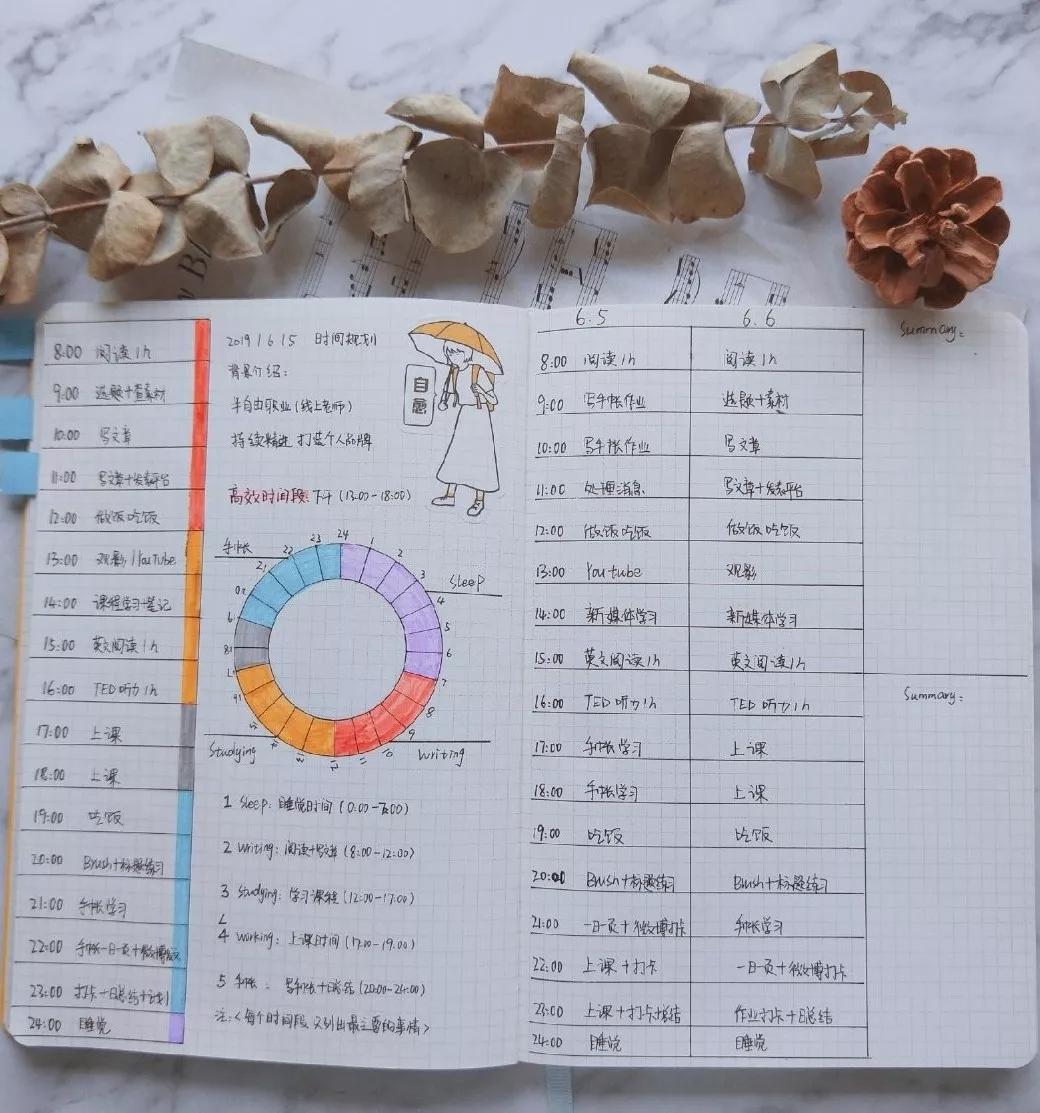 8:00 阅读1h
9:00 选题+查素材
10:00 写文章
11:00 写文章+发表平台
12:00 做饭吃饭
13:00 观影/YouTube
14:00 课程学习+笔记
15:00 英文阅读1h
16:00 TED听力1h
17:00 上课
18:00 上课
19:00 吃饭
20:00 Brush+标题练习
21:00 手帐学习
22:00 手帐一日一页+微博
23:00 打卡+日总结+计划
24:00 睡觉
2019/6/5 时间规划
背景介绍:
半自由职业(线上老师)
持续精进 打造个人品牌
自
高效时间段:下午(13:00-18:00)
手帐
Sleep
Studying
Writing
24 1 2 3 4 5 6 7 8 9 10 11 12 13 14 15 16 17 18 19 20 21 22 23
1 Sleep: 睡觉时间(0:00-7:00)
2 Writing: 阅读+写文章(8:00-12:00)
3 Studying: 学习课程(12:00-17:00)
4 Working: 上课时间(17:00-19:00)
5 手帐: 写手帐+日总结(20:00-24:00)
注:<每个时间段只列出最主要的事情>
6.5 6.6
8:00 阅读1h 阅读1h
9:00 写手帐作业 选题+素材
10:00 写手帐作业 写文章
11:00 处理消息 写文章+发表平台
12:00 做饭吃饭 做饭吃饭
13:00 Youtube 观影
14:00 新媒体学习 新媒体学习
15:00 英文阅读1h 英文阅读1h
16:00 TED听力1h TED听力1h
17:00 手帐学习 上课
18:00 手帐学习 上课
19:00 吃饭 吃饭
20:00 Brush+标题练习 Brush+标题练习
21:00 一日一页+微博打卡 手帐学习
22:00 上课+打卡 一日一页+微博打卡
23:00 上课+打卡+总结 作业打卡+日总结
24:00 睡觉 睡觉
Summary:
Summary: